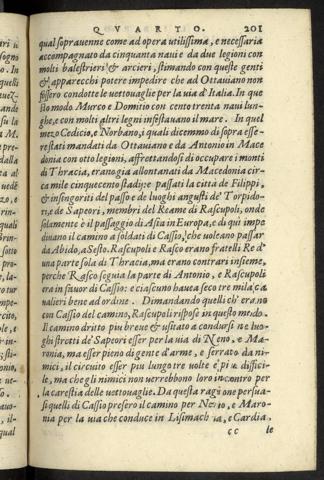 QVARTO. 201
qual sopra uenne come ad opera utilissima, e necessaria
accompagnato da cinquanta naui e da due legioni con
molti balestrieri & arcieri, stimando con queste genti
& apparecchi potere impedire che ad Ottauiano non
fussero condotte le uettouaglie per la uia d'Italia. In que
sto modo Murco e Domitio con cento trenta naui lun-
ghe, e con molti altri legni infestauano il mare. In quel
mezo Cedicio, e Norbano, i quali dicemmo di sopra esse-
re stati mandati da Ottauiano e da Antonio in Mace
donia con otto legioni, affrettandosi di occupare i monti
di Thracia, eranogia allontanati da Macedonia cir-
ca mile cinquecento stadij: e passati la citta de Filippi,
& insignoriti del passo e de luoghi angusti de' Torpido-
ri, e de Sapeori, membri del Reame di Rascupoli, onde
solamente è il passaggio di Asia in Europa, e di qui impe
diuano il camino a soldati di Cassio, che uoleano passar
da Abido, a Sesto. Rascupoli e Rasco erano fratelli Re d'
una parte sola di Thracia, ma erano contrari insieme,
perche Rasco seguia la parte di Antonio, e Rascupoli
era in fauor di Cassio: e ciascuno haueua seco tre mila ca
ualieri bene ad ordine. Dimandando quelli ch' erano
con Cassio del camino, Rascupoli rispose in questo modo.
Il camino dritto piu breue & usitato a condursi ne luo-
ghi stretti de' Sapeori esser per la uia di Neno, e Ma-
ronia, ma esser pieno di gente d'arme, e serrato da ni-
mici, il circuito esser piu lungo tre uolte e piu diffici-
le, ma che gli nimici non uerrebbono loro incontro per
la carestia delle uettouaglie. Da questa ragione persua-
si quelli di Cassio presero il camino per Neno, e Maro-
nia per la uia che conduce in Lisimachia, e Cardia,
cc le